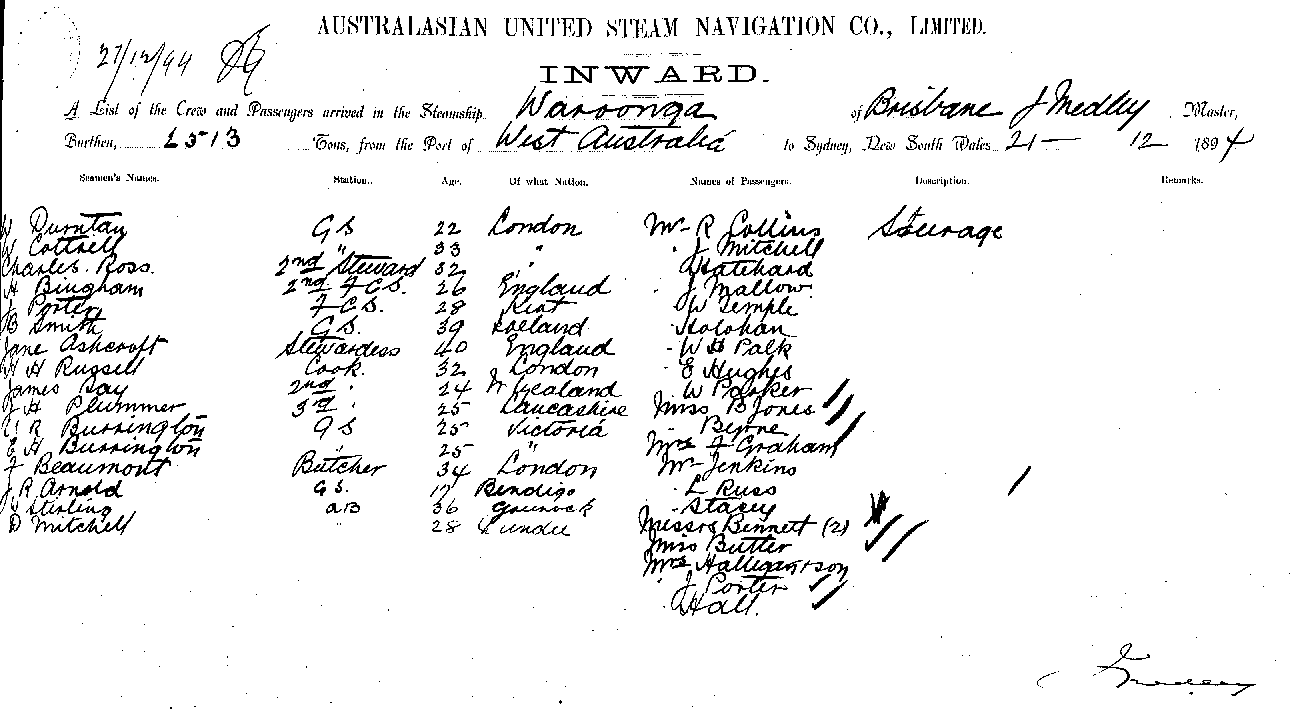 AUSTRALASIAN UNITED STEAM NAVIGATION CO., LIMITED.
27/12/94
INWARD.
A List of the Crew and Passengers arrived in the Steamship Waroonga of Brisbane J Medley Master,
Burthen, 2513 Tons, from the Port of West Australia to Sydney, New South Wales 21 - 12 1894
Seamen's Names. Station. Age. Of what Nation. Names of Passengers. Description. Remarks.
W GS 22 London Mr R Collins Steerage
W Cottrell " 33 " " J Mitchell
Charles Ross 2nd Steward 32 " Hatchard
H Bingham 2nd FCS. 26 England " J Mallow
J Porter FCS. 28 Kent W Temple
B Smith GS. 39 Iceland Holohan
Jane Ashcroft Stewardess 40 England " W H Palk
H H Russell Cook. 32 London " E Hughes
James Day 2nd " 24 N Zealand W Parker
J H Plummer 3rd " 25 Lancashire Miss B Jones
U R Burrington GS 25 Victoria " Byrne
E H Burrington " 25 " Mrs F Graham
F Beaumont Butcher 34 London Mr Jenkins
J R Arnold GS. 17 Bendigo " L Russ
J Stirling AB 36 Greenock " Stacey
D Mitchell " 28 Dundee Messrs Bennett (2)
Miss Butler
Mrs Halligan & son
" J Porter
" Hall.
J Medley